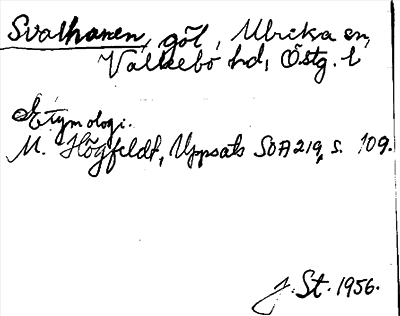 Svalhamen, göl, Ulrika sn,
Valkebo hd, Östg. l
Etymologi.
M. Högfeldt, Uppsats SOA 219, s. 109.
J. St. 1956.